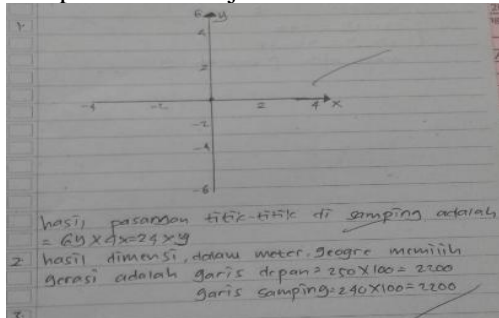 1.
6 y
4
2
-4 -2 2 4 x
-2
-4
-6
hasil pasangan titik-titik di samping adalah
= 6y x 4x = 24xy
2. hasil dimensi, dalam meter. geogre memilih
gerasi adalah garis depan = 250 x 100 = 2200
garis samping = 240 x 100 = 2200